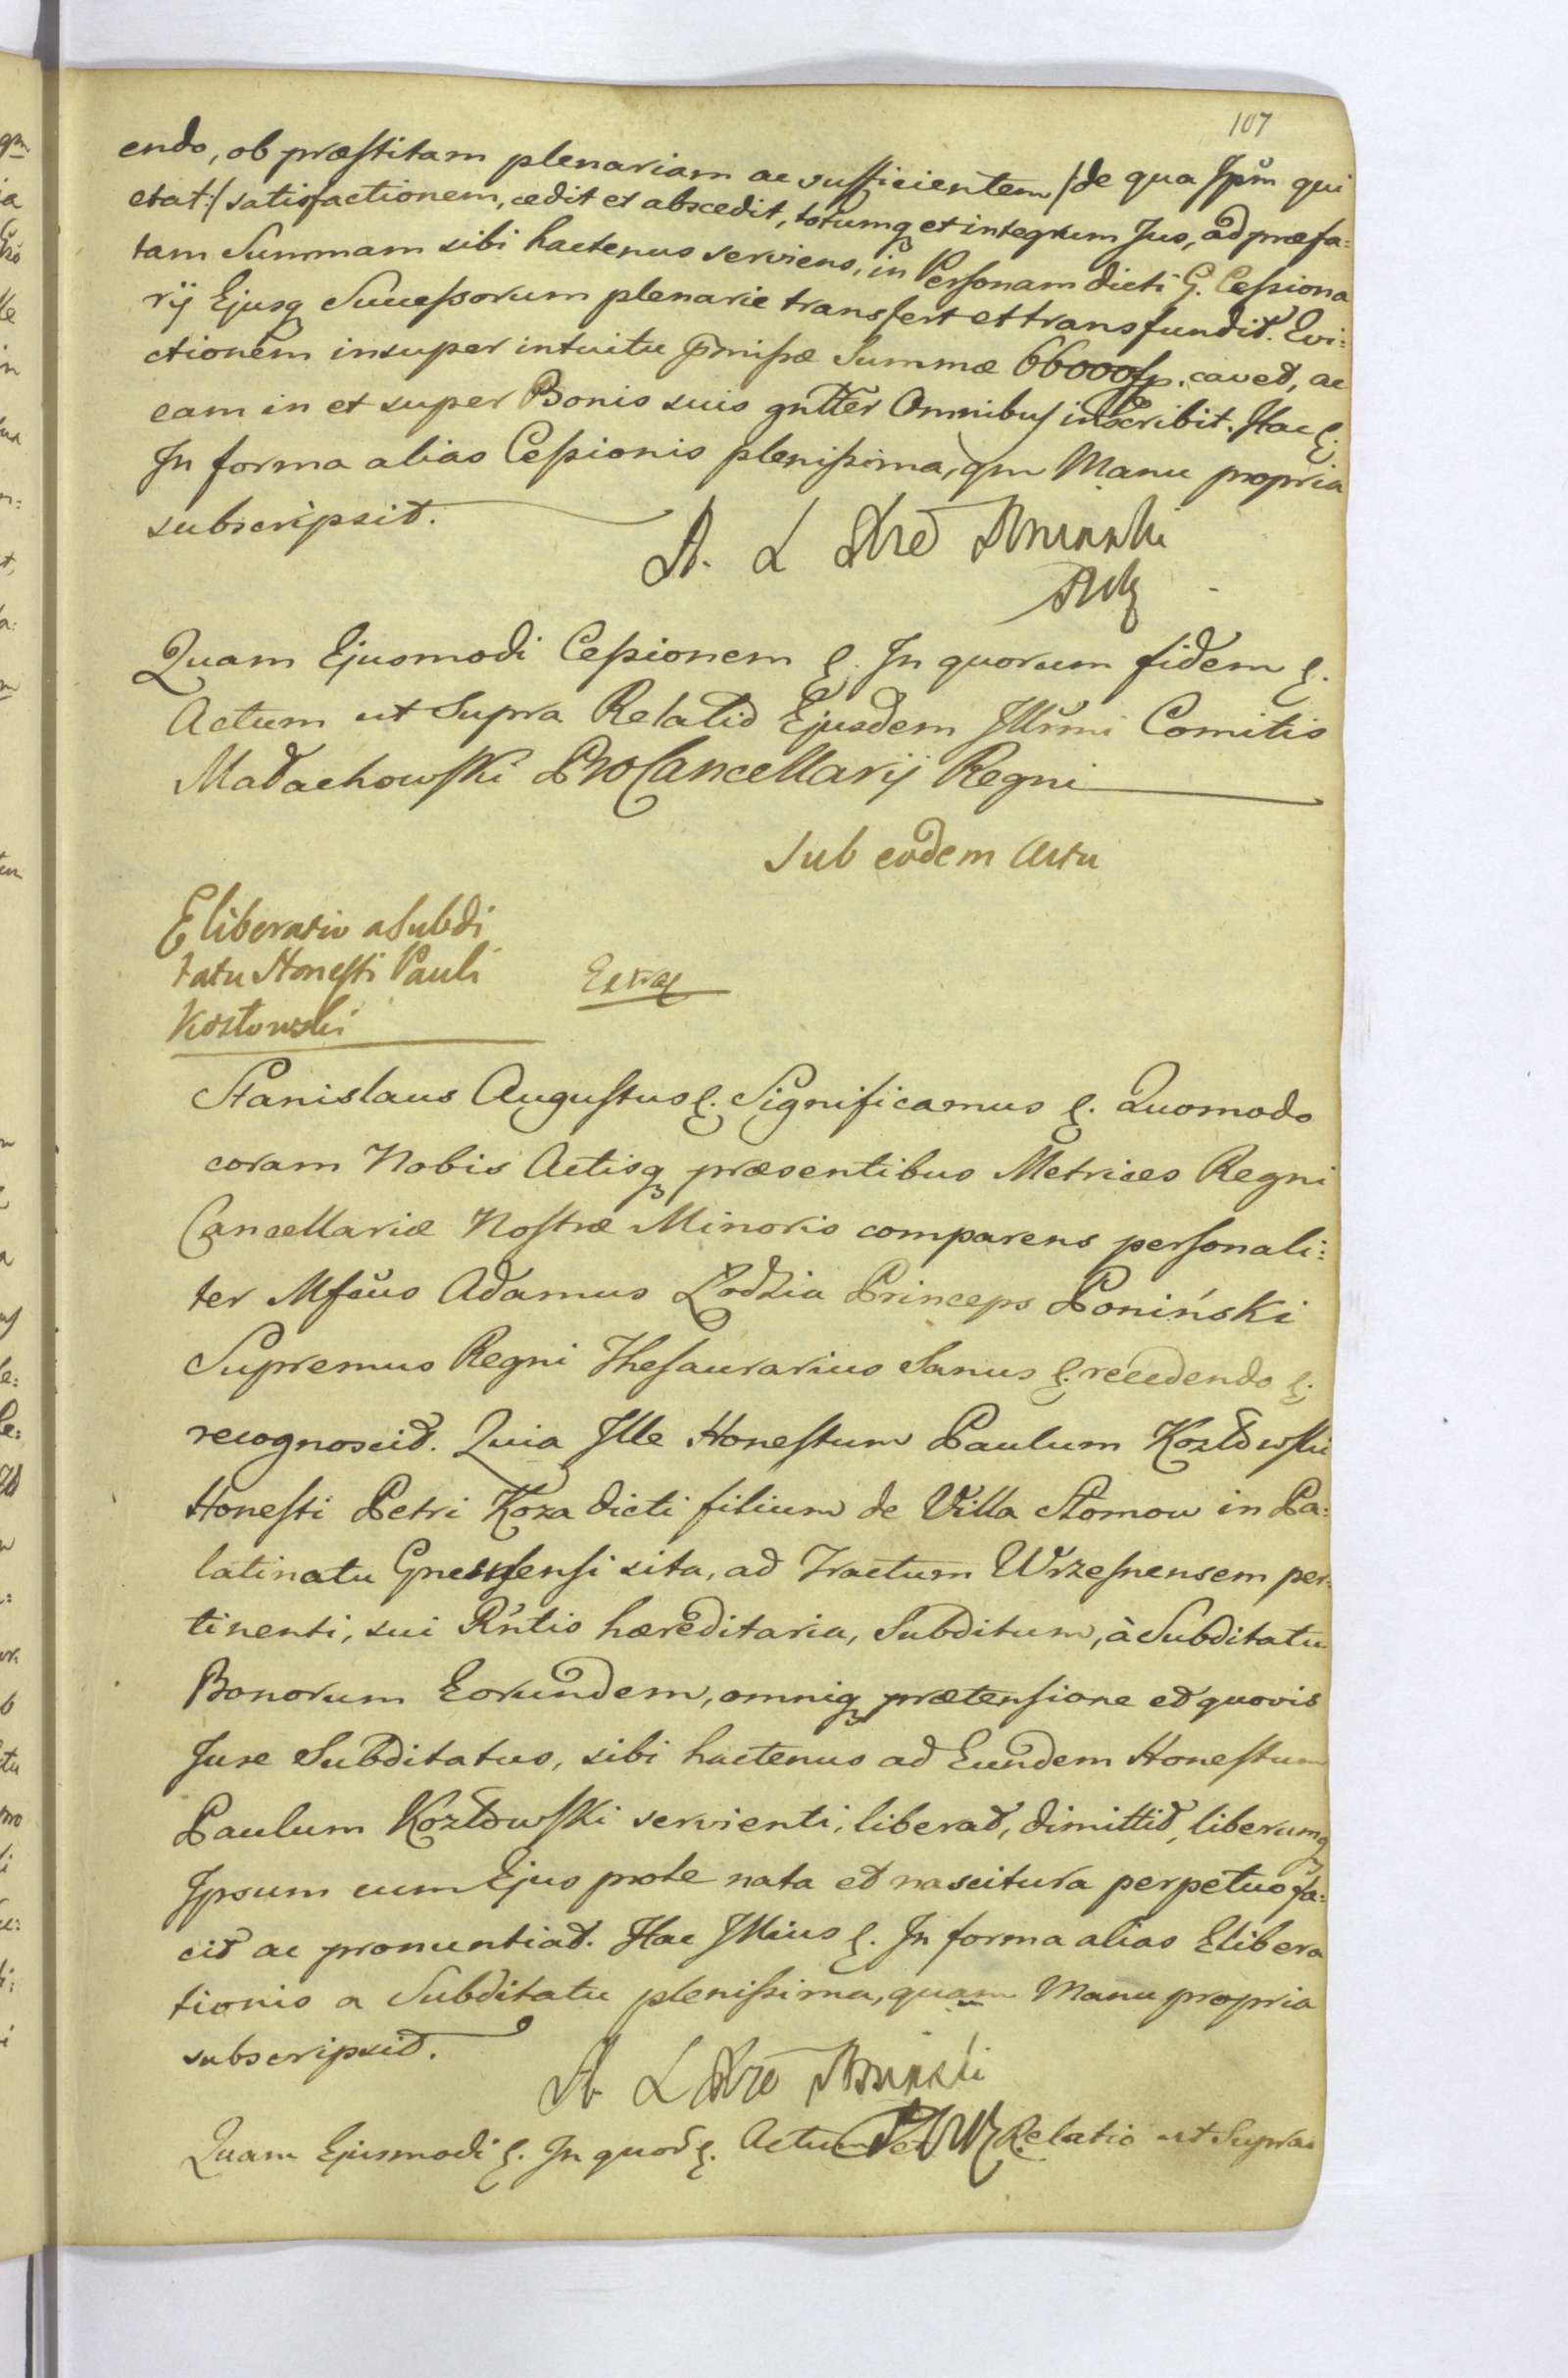 107
endo, ob præstitam plenariam ac sufficientem /de qua Ipsũ qui
etat:/ satisfactionem, cedit et abscedit, totumq et integrum Jus, ad præfa=
tam Summam sibi hactenus serviens, in Personam dicti G. Cessiona
rij Ejusq Successorum plenarie transfert et transfundit. Evi=
ctionem insuper intuitu pmissæ Summæ 66000 fp. cavet, ac
eam in et super Bonis suis gntter Omnibus inscribit. Hac &.
In forma alias Cessionis plenissima, qm Manu propria
subscripsit.
A. L Xże Poninski
PWK
Quam Ejusmodi Cessionem &. In quorum fidem &.
Actum ut Supra Relatio Ejusdem Illrmi Comitis
Małachowski ProCancellarij Regni
Sub eodem Actu
Eliberatio a Subdi
tatu Honesti Pauli
Kozłowski
Extra
Stanislaus Augustus &. Significamus &. Quomodo
coram Nobis Actisq præsentibus Metrices Regni
Cancellariæ Nostræ Minoris comparens personali=
ter Mfcus Adamus Łodzia Princeps Poniński
Supremus Regni Thesaurarius Sanus &. recedendo &.
recognoscit. Quia Ille Honestum Paulum Kozłowski
Honesti Petri Koza dicti filium de Villa Słomow in Pa=
latinatu Gnesnensi sita, ad Tractum Wrzesnensem per=
tinenti, sui Rntis hæreditaria, Subditum, à Subditatu
Bonorum Eorundem, omniq prætensione et quovis
Jure Subditatus, sibi hactenus ad Eundem Honestum
Paulum Kozłowski servienti, liberat, dimittit, liberumq
Ipsum cum Ejus prole nata et nascitura perpetuo fa=
cit ac pronuntiat. Hac Illius &. In forma alias Elibera
tionis a Subditatu plenissima, quam Manu propria
subscripsit.
A. L Xże Poninski
PWK
Quam Ejusmodi &. In quor &. Actum Relatio ut Supra